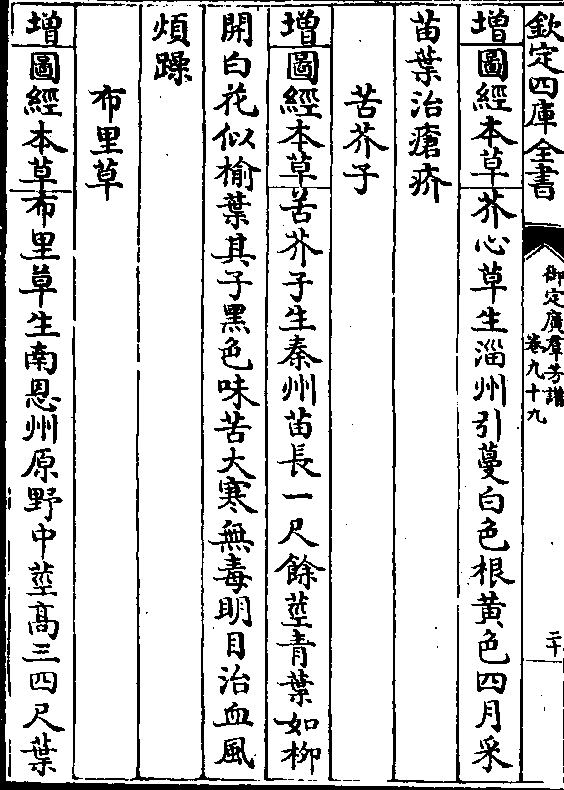 欽定四庫全書
御定廣羣芳譜
卷九十九
二十
增圖經本草芥心草生淄州引蔓白色根黄色四月采
苗葉治瘡疥
苦芥子
增圖經本草苦芥子生秦州苗長一尺餘莖青葉如柳
開白花似榆葉其子黑色味苦大寒無毒明目治血風
煩躁
布里草
增圖經本草布里草生南恩州原野中莖髙三四尺葉